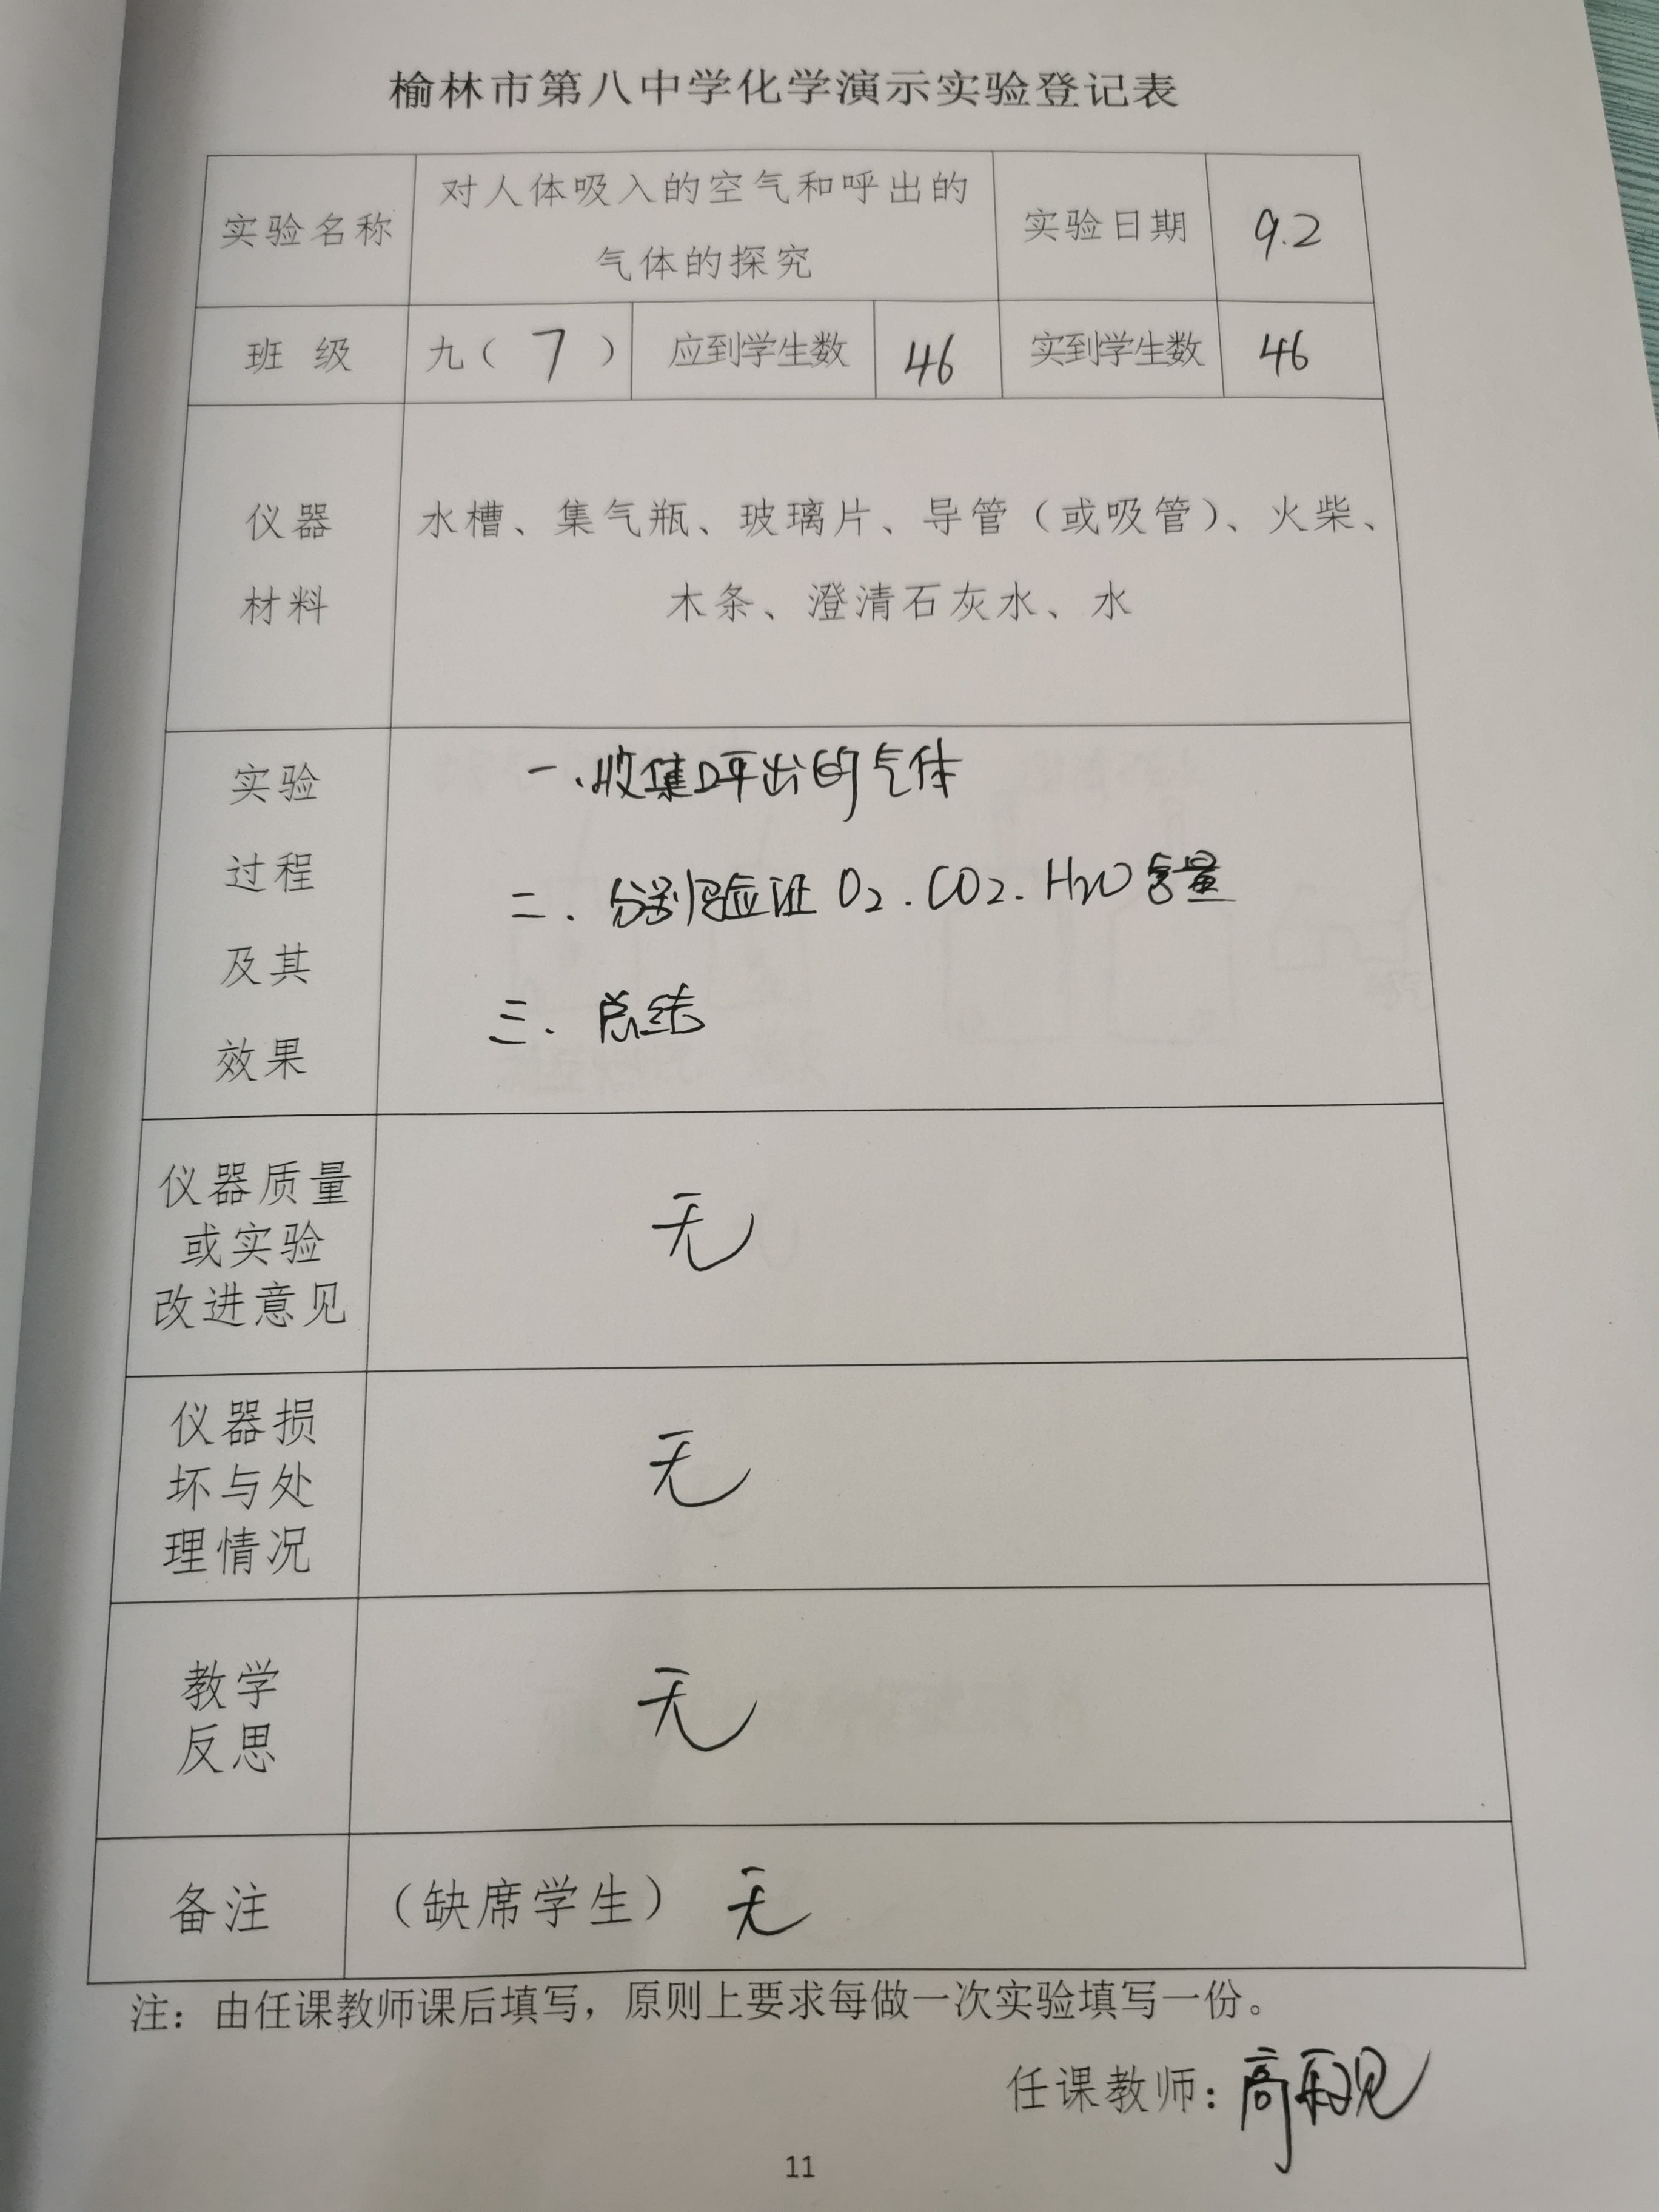 榆林市第八中学化学演示实验登记表
实验名称
对人体吸入的空气和呼出的
气体的探究
实验日期
9.2
班 级
九( 7 )
应到学生数
46
实到学生数
46
仪器
材料
水槽、集气瓶、玻璃片、导管（或吸管）、火柴、
木条、澄清石灰水、水
实验
过程
及其
效果
一、收集呼出的气体
二、分别验证 O2. CO2. H2O含量
三、总结
仪器质量
或实验
改进意见
无
仪器损
坏与处
理情况
无
教学
反思
无
备注
（缺席学生） 无
注：由任课教师课后填写，原则上要求每做一次实验填写一份。
任课教师：高
11